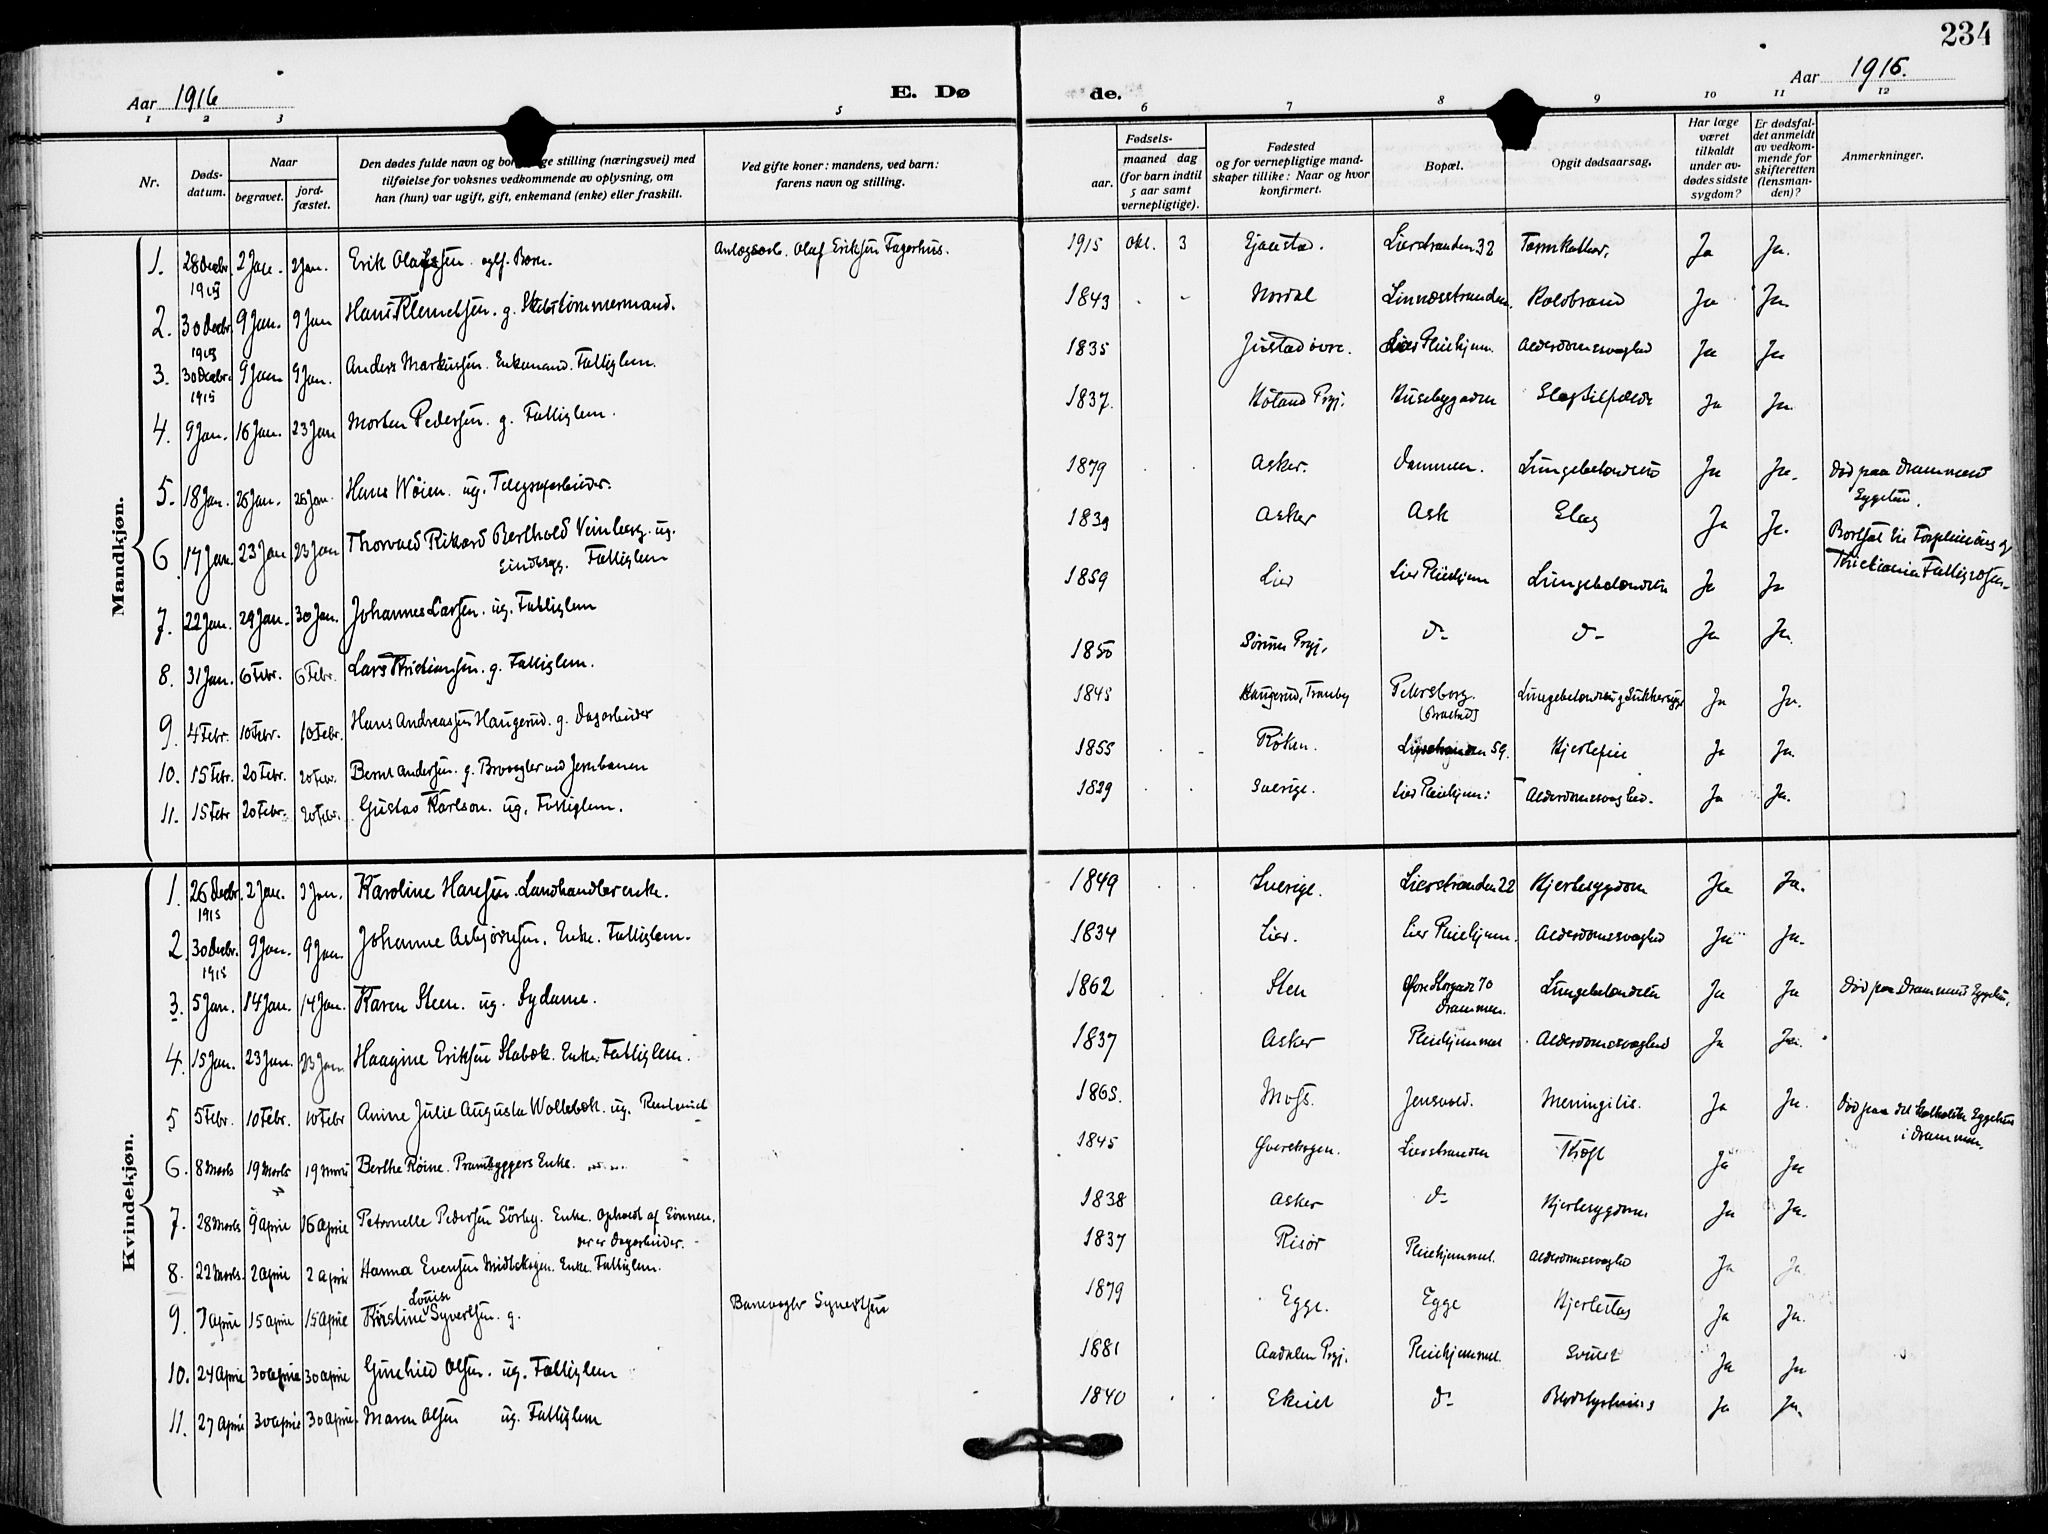 234
Aar 1916
E. Dø
de.
Aar 1916.
1 2 3 5 6 7 8 9 10 11 12
Nr.
Døds-
datum.
Naar
begravet.
jord-
fæstet.
Den dødes fulde navn og bor ge stilling (næringsvei) med
tilføielse for voksnes vedkommende av oplysning, om
han (hun) var ugift, gift, enkemand (enke) eller fraskilt.
Ved gifte koner: mandens, ved barn:
farens navn og stilling.
Fødsels-
aar.
maaned dag
(for barn indtil
5 aar samt
vernepligtige).
Fødested
og for vernepligtige mand-
skaper tillike: Naar og hvor
konfirmert.
Bopæl.
Opgit dødsaarsag.
Har læge
været
tilkaldt
under av-
dødes sidste
sygdom?
Er dødsfal-
det anmeldt
av vedkom-
mende for
skifteretten
(lensman-
den)?
Anmerkninger.
Mandkjøn.
1. 28 Decbr. 1915 2 Jan. 2 Jan. Erik Olafsen Olaf Eriksen Fagerhus. 1915 Okt. 3 Lierstranden 32 Ja Ja.
2. 30 Decbr. 1915 9 Jan. 9 Jan Hans Klemetsen. g. Skibstømmermand. 1843 Linnesstranden. Koldbrand Ja Ja.
3. 30 Decbr. 1915 9 Jan 9 Jan. Anders Markussen. Enkemand. Fattiglem. 1835 Justad øvre. Lier Pleiehjem. Alderdomssvaghed Ja Ja
4. 9 Jan. 16 Jan. 23 Jan Morten Pedersen. g. Fattiglem. 1837. Høland Prgj. Husebygaden Slagtilfælde Ja Ja.
5. 18 Jan. 26 Jan. 26 Jan. Hans Wøien. ug. Telegrafarbeider. 1879 Asker. Dammen. Lungebetændelse Ja Ja. Død paa Drammens
Sygehus.
6. 17 Jan. 23 Jan 23 Jan Thorvald Rikard Berthold Veinberg. ug.
Sindssyg. Fattiglem 1839 Asker Ask Slag Ja Ja. Bortsat til Forpleining af
Kristiania Fattigvæsen.
7. 22 Jan. 29 Jan. 30 Jan. Johannes Larsen. ug. Fattiglem 1859 Lier Lier Pleiehjem Lungebetændelse Ja Ja
8. 31 Jan. 6 Febr. 6 Febr. Lars Kristiansen. g. Fattiglem. 1850 Sørum Prgj. D- D- Ja Ja.
9. 4 Febr. 10 Febr. 10 Febr. Hans Andreassen Haugerud. g. Dagarbeider 1845 Haugerud, Tranby Petersborg. Lungebetændelse, Sukkersyge Ja Ja.
10. 15 Febr. 20 Febr. 20 Febr. Bernt Andersen. g. Brovagter ved Jernbanen 1855 Røken. Lierstranden 59. Hjertefeil Ja Ja.
11. 15 Febr 20 Febr. 20 Febr. Gustav Karlson. ug. Fattiglem. 1829 Sverige. Lier Pleiehjem. Alderdomssvaghed. Ja Ja.
Kvindekjøn.
1. 26 Decbr. 1915 2 Jan. 3 Jan. Karoline Hansen. Landhandlerenke. 1849 Sverige. Lierstranden 22 Hjertesygdom Ja Ja.
2. 30 Decbr. 1915 9 Jan. 9 Jan. Johanne Asbjørnsen. Enke. Fattiglem. 1834 Lier. Lier Pleiehjem. Alderdomssvaghed Ja Ja.
3. 5 Jan. 14 Jan. 14 Jan. Karen Steen. ug. Sydame. 1862 Sten Øvre Storgade 70
Drammen. Lungebetændelse Ja Ja Død paa Drammens Sygehus.
4. 15 Jan. 23 Jan. 23 Jan. Haagine Eriksen Stabæk. Enke. Fattiglem. 1837 Asker Pleiehjemmet Alderdomssvaghed Ja Ja.
5 5 Febr. 10 Febr. 10 Febr Anine Julie Augusta Wollebæk. ug. 1865. Moss. Jensvold. Meningitis. Ja Ja. Død paa det katholske Sygehus
i Drammen.
6. 8 Marts 19 Marts 19 Marts Berthe Røine. Prambyggers Enke. 1845 Øverskogen. Lierstranden Kræft Ja Ja
7. 28 Marts 9 April 16 April Petronelle Pedersen Sørby. Enke. Ophold af Sønnen,
der er Dagarbeider. 1838 Asker D- Hjertesygdom Ja Ja.
8. 22 Marts. 2 April 2 April Hanna Evensen Midtskogen. Enke. Fattiglem. 1837 Risør Pleiehjemmet. Alderdomssvaghed Ja Ja.
9. 7 April 15 April 15 April Kirstine Louise Syvertsen. g. Banevogter Syvertsen 1879 Egge. Egge Hjerteslag Ja Ja.
10. 24 April 30 April 30 April Gunhild Olsen. ug. Fattiglem 1881 Aadalen Prgj. Pleiehjemmet. Svulst Ja Ja
11. 27 April 30 April 30 April. Maren Olsen ug. Fattiglem 1840 Ekeiet D- Ja Ja.